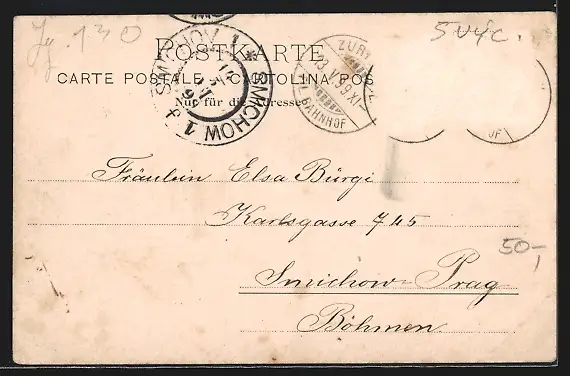 Jg. 130
5 vyc.
POSTKARTE
CARTE POSTALE CARTOLINA POS
Nur für die Adresse
SMICHOW 1 * SMICHOW 1
ZÜR
99.XI
BAHNHOF
Fräulein Elsa Bürgi
Karlsgasse 745
50-,
Smichow-Prag
Böhmen.